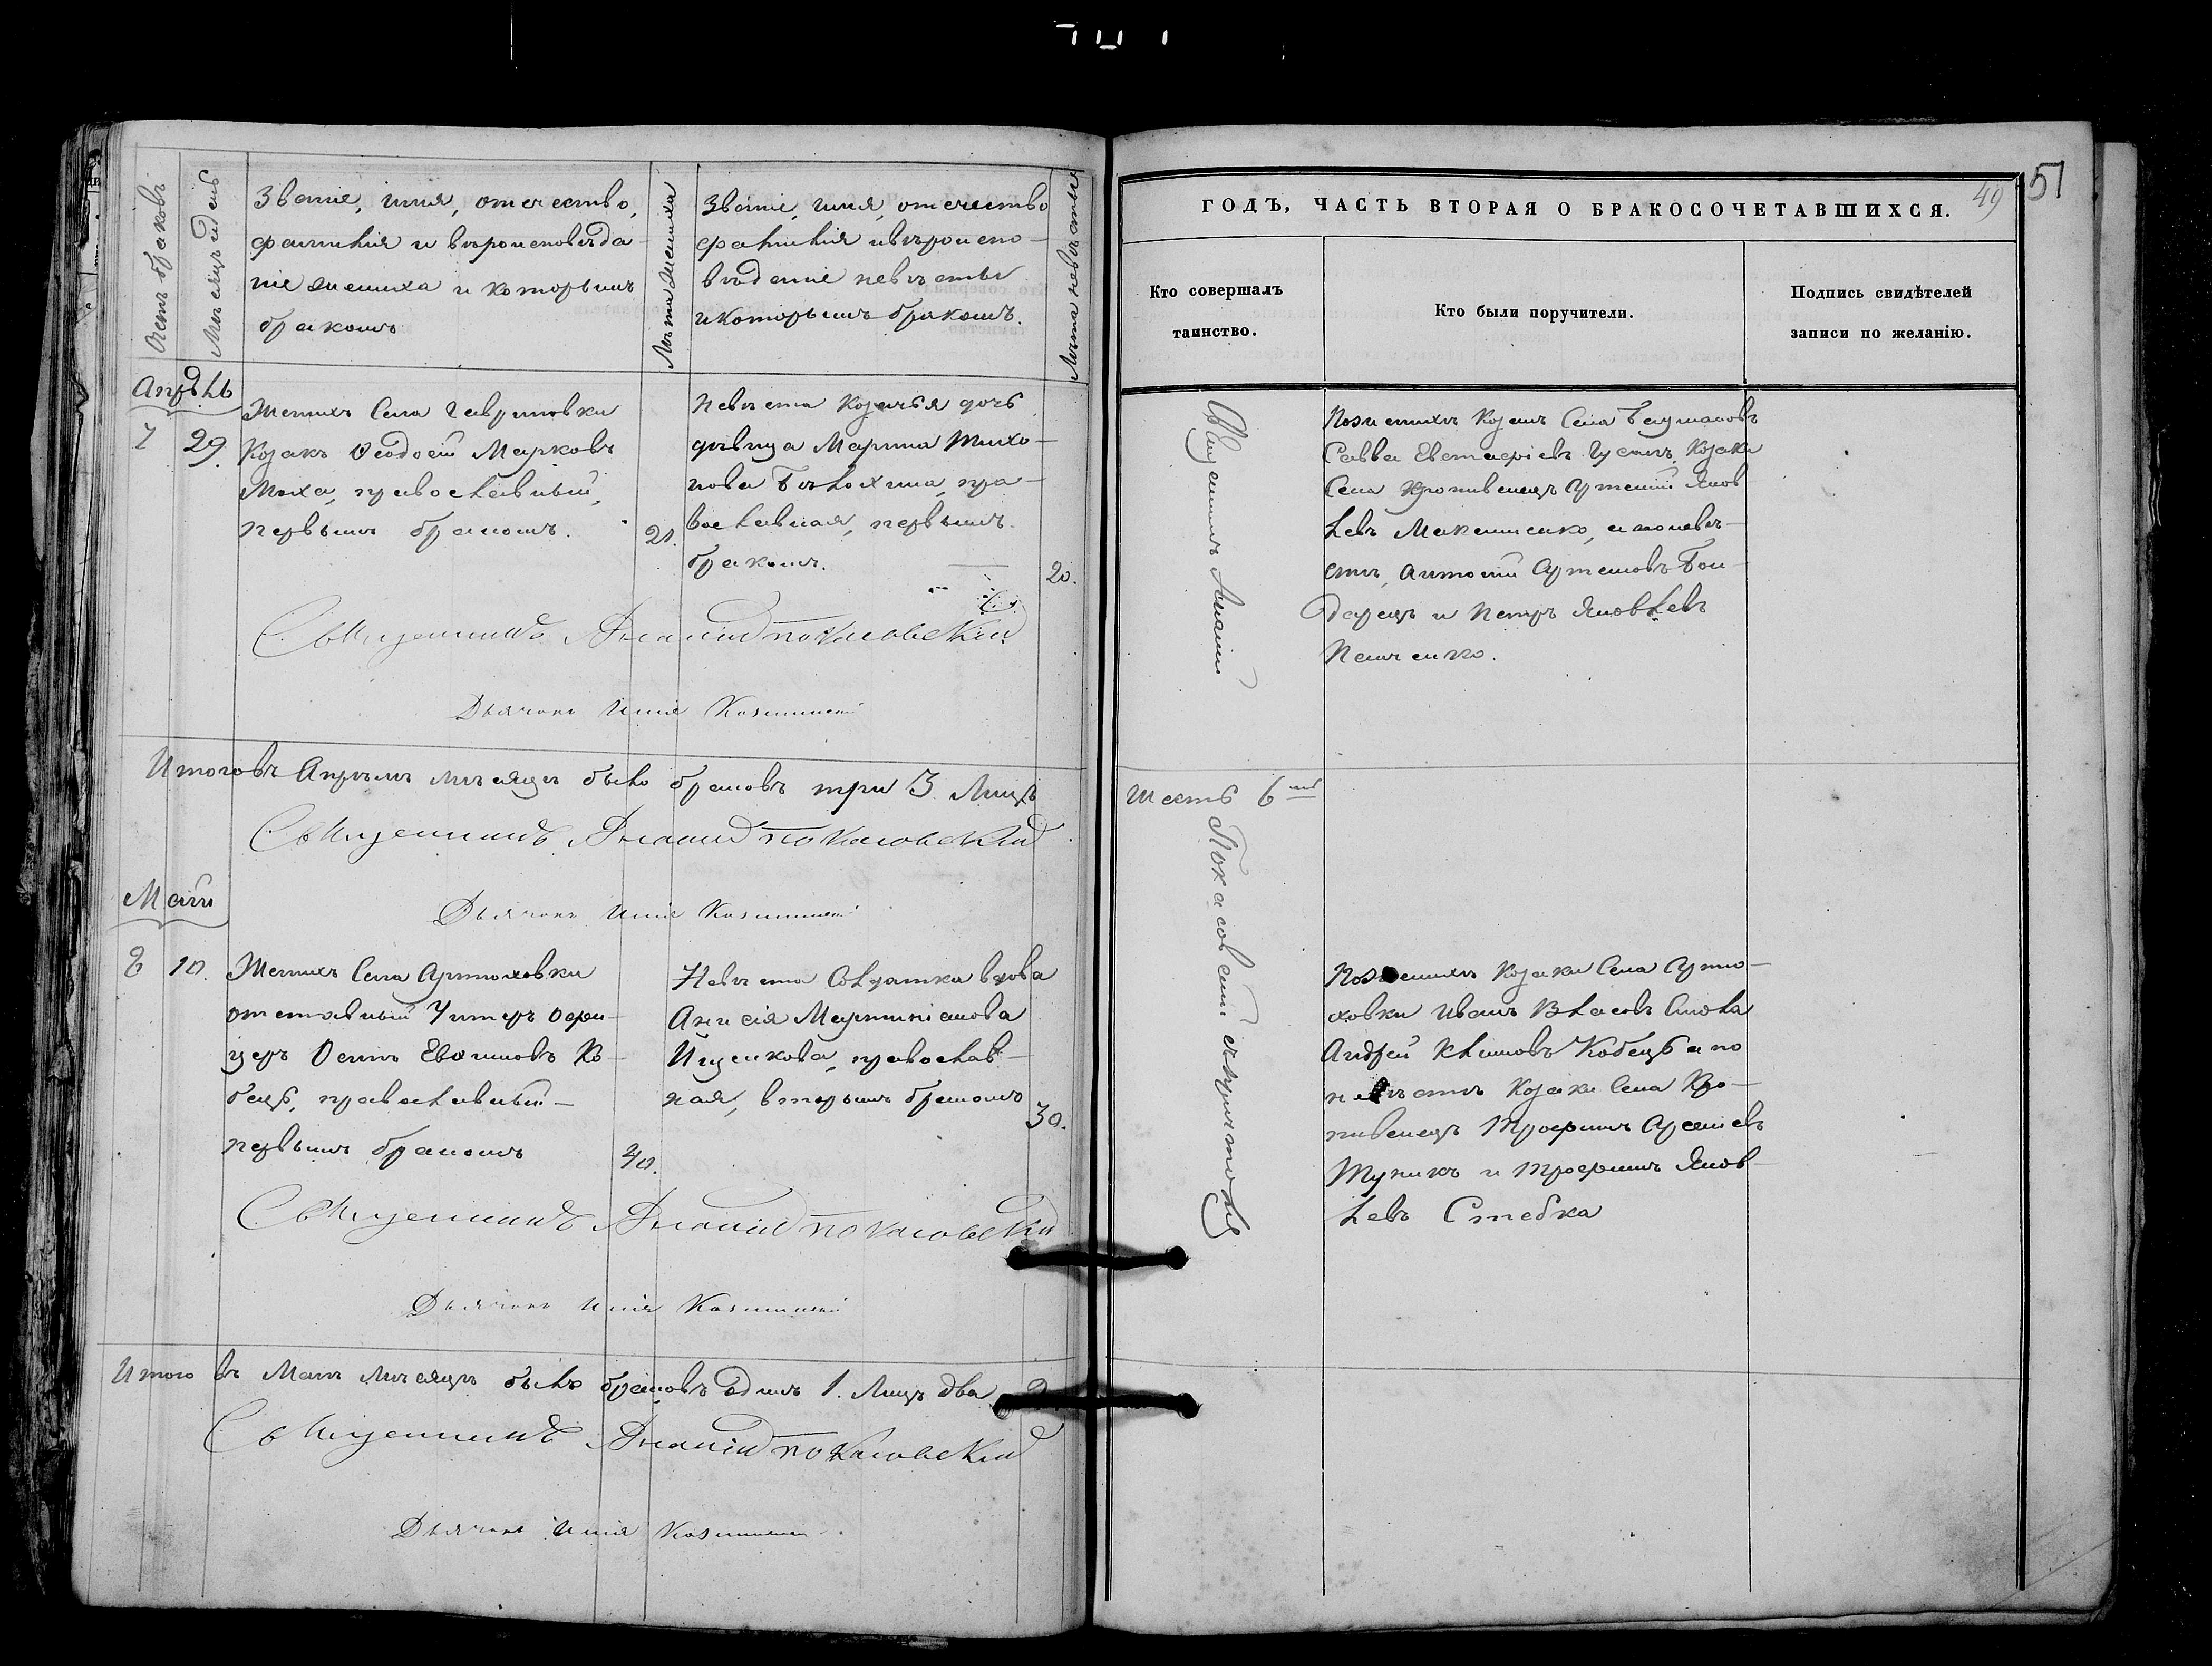 Счетъ браковъ
Мѣсяцъ и день
Званіе, имя, отчество,
фамилія и вѣроисповѣда-
ніе жениха и которымъ
бракомъ
Лѣта жениха
Званіе, имя, отчество
фамилія и вѣроиспо-
вѣданіе невѣсты
и которымъ бракомъ.
Лѣта невѣсты
Апрѣль
7 29.
Женихъ села Гавриловки
козакъ Феодосій Марковъ
Моха, православный,
первымъ бракомъ.
21.
Невѣста козачья дочь
дѣвица Марина Тихо-
нова Бѣлохина, пра-
вославная, первымъ
бракомъ.
20.
Священникъ Ананій Покасовскій
Дьячокъ Илія
Итого въ Апрѣлѣ мѣсяцѣ было браковъ три 3 Лицъ
Священникъ Ананій Покасовскій
Дьячокъ Илія
Май
8 10.
Женихъ села Артюховки
отставный Унтеръ офи-
церъ Осипъ Евфимовъ Ко-
бецъ, православный
первымъ бракомъ
40.
Невѣста солдатка вдова
Анисія Мартиніанова
Ищенкова, православ-
ная, вторымъ бракомъ
30.
Священникъ Ананій Покасовскій
Дьячокъ Илія
Итого въ Маѣ мѣсяцѣ было браковъ одинъ 1. Лицъ два 2
Священникъ Ананій Покасовскій
Дьячокъ Илія
49
51
ГОДЪ, ЧАСТЬ ВТОРАЯ О БРАКОСОЧЕТАВШИХСЯ.
Кто совершалъ
таинство.
Кто были поручители.
Подпись свидѣтелей
записи по желанію.
Священникъ Ананій
Покасовскій съ причтомъ
По женихѣ козакъ села
Савва Евстафіевъ Гусакъ, козакъ
села Кропивенецъ Артемій Яков
левъ Максименко, а по невѣ-
стѣ, Антоній Артемовъ Бон-
дарецъ и Петръ Яковлевъ
шесть 6
По женихѣ козаки села Артю-
ховки Иванъ Власовъ
Андрей Климовъ Кобецъ а по
невѣстѣ козаки села Кро-
пивенецъ Трофимъ Арсеніевъ
Тупикъ и Трофимъ Яков-
левъ Стебка